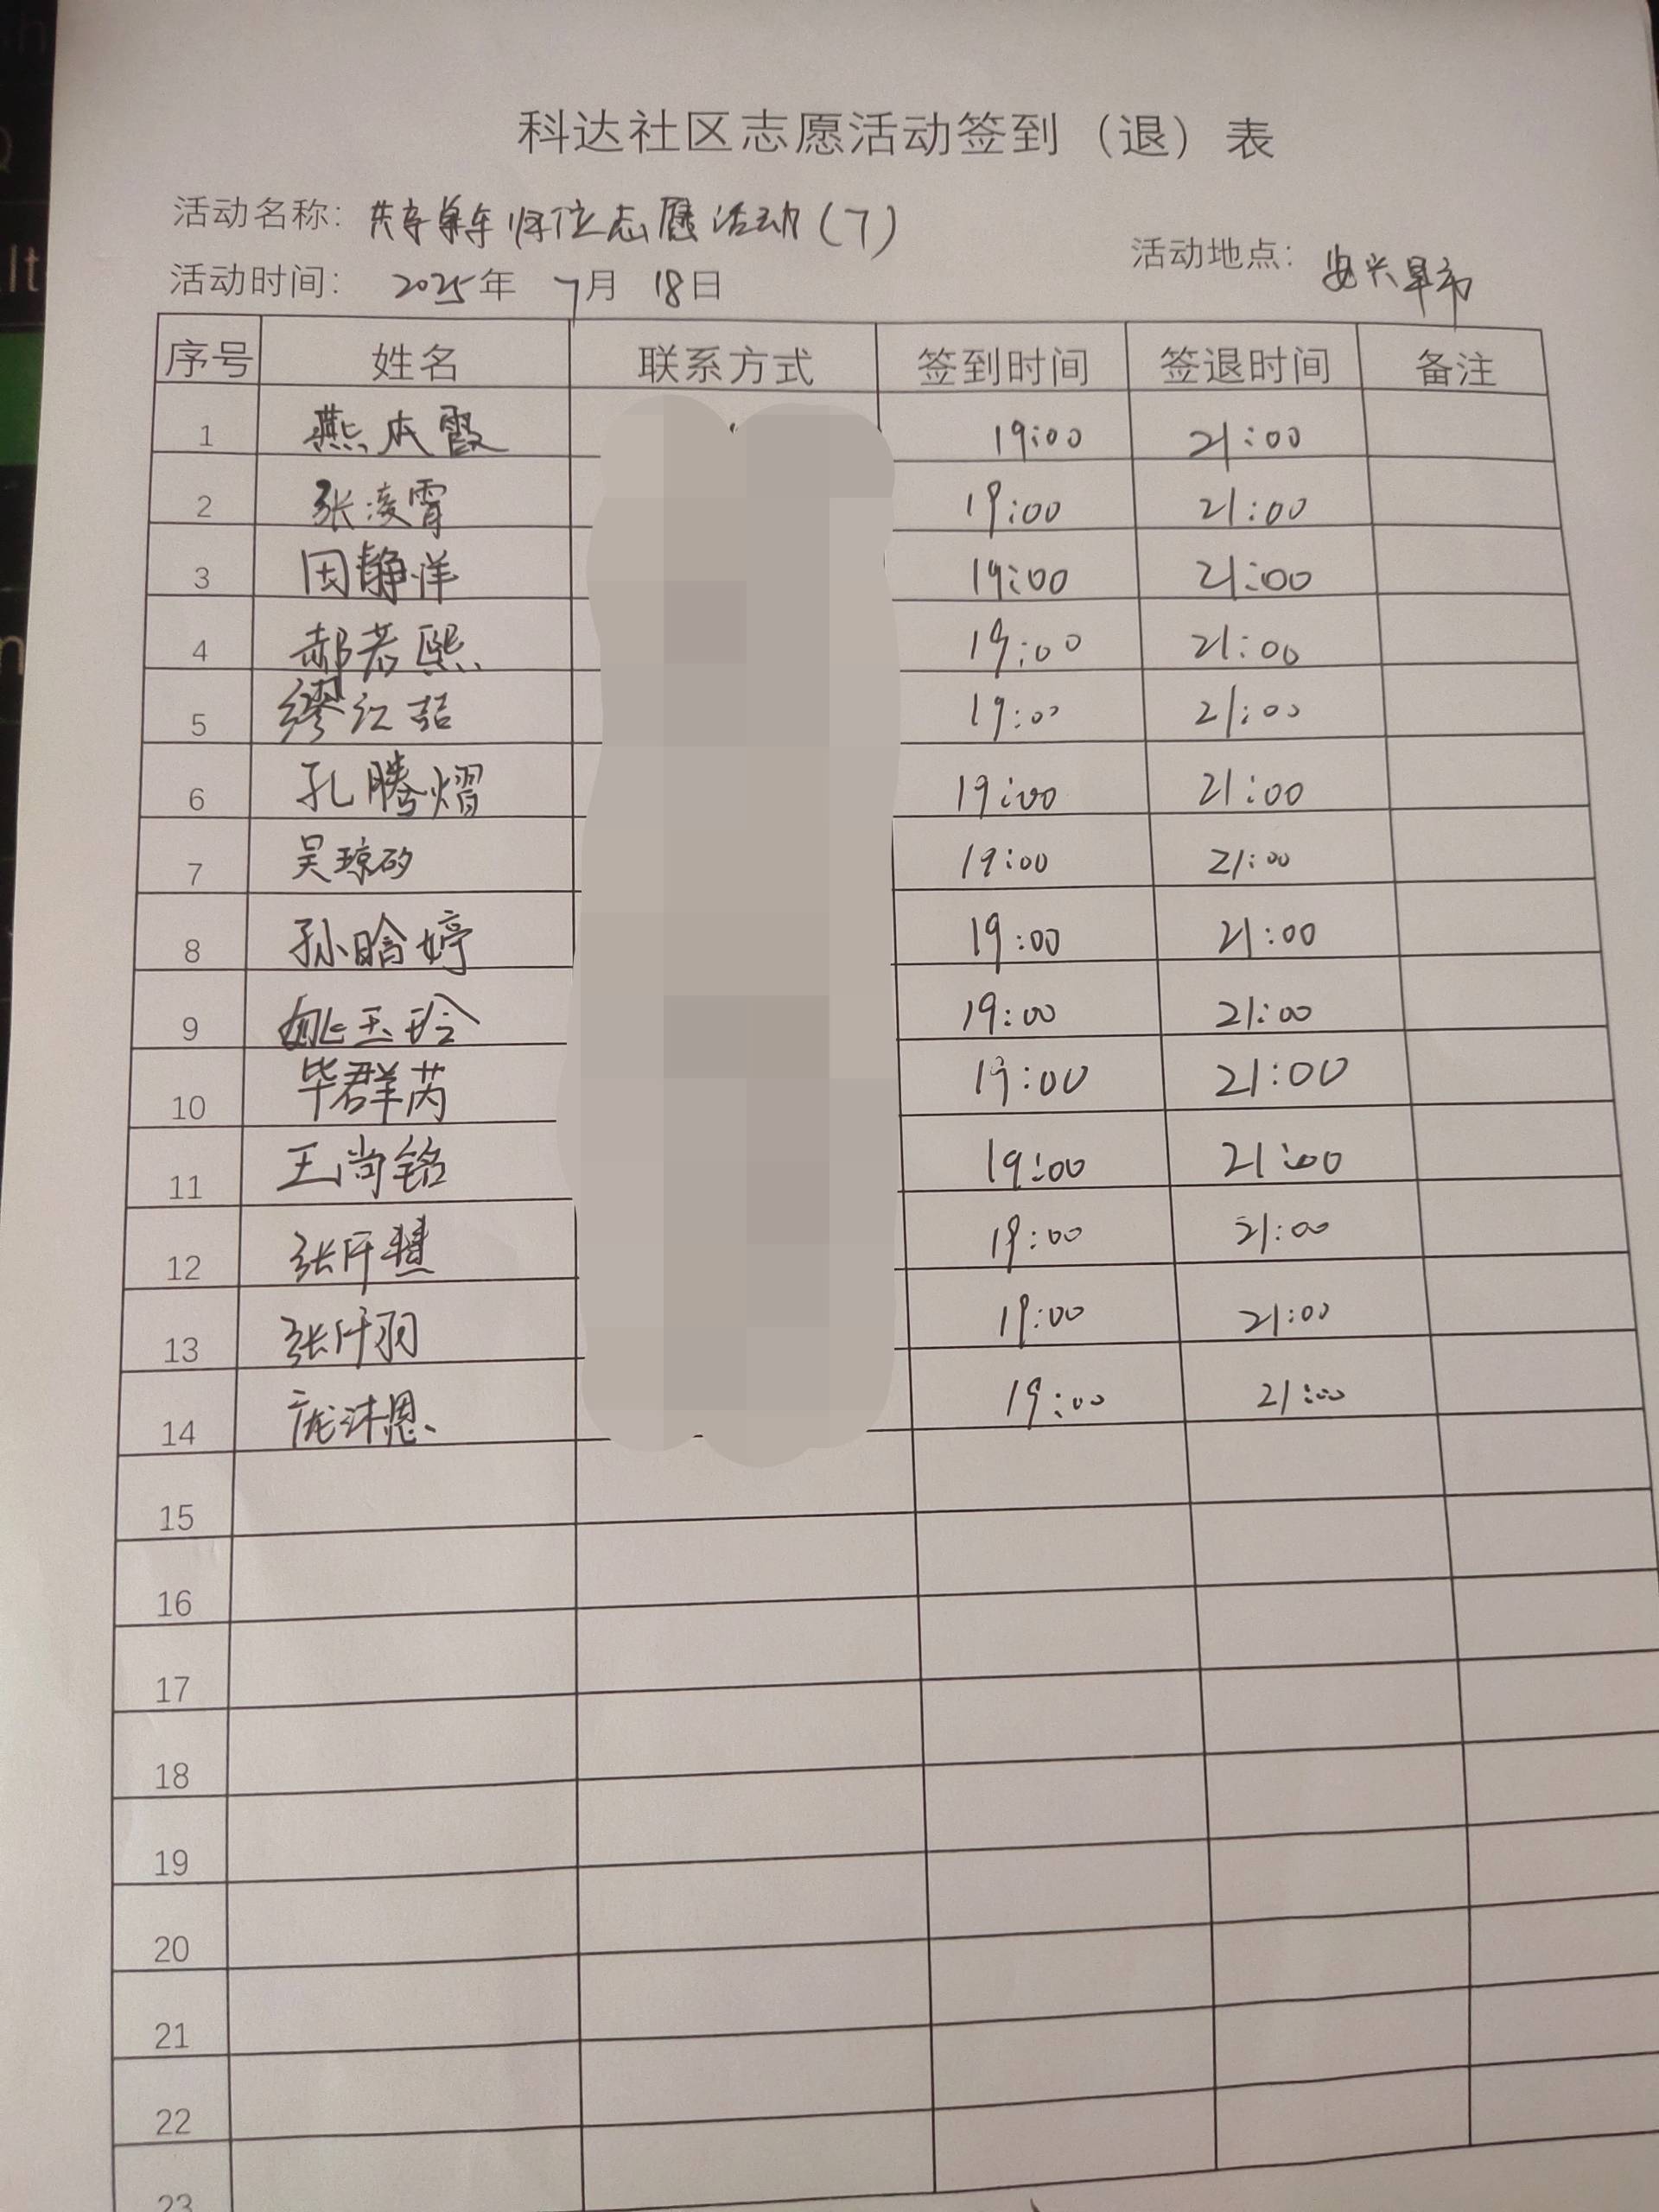 科达社区志愿活动签到（退）表
活动名称：共享单车归位志愿活动（7）
活动地点：安兴早市
活动时间：2025年 7月 18日
序号 姓名 联系方式 签到时间 签退时间 备注
1 燕本霞 19:00 21:00
2 张凌霄 19:00 21:00
3 田静洋 19:00 21:00
4 郝若熙 19:00 21:00
5 缪江喆 19:00 21:00
6 孔腾熠 19:00 21:00
7 吴琼矽 19:00 21:00
8 孙晗婷 19:00 21:00
9 姚玉玲 19:00 21:00
10 毕群芮 19:00 21:00
11 王尚铭 19:00 21:00
12 张仟慧 19:00 21:00
13 张仟羽 19:00 21:00
14 庞沐恩 19:00 21:00
15
16
17
18
19
20
21
22
23